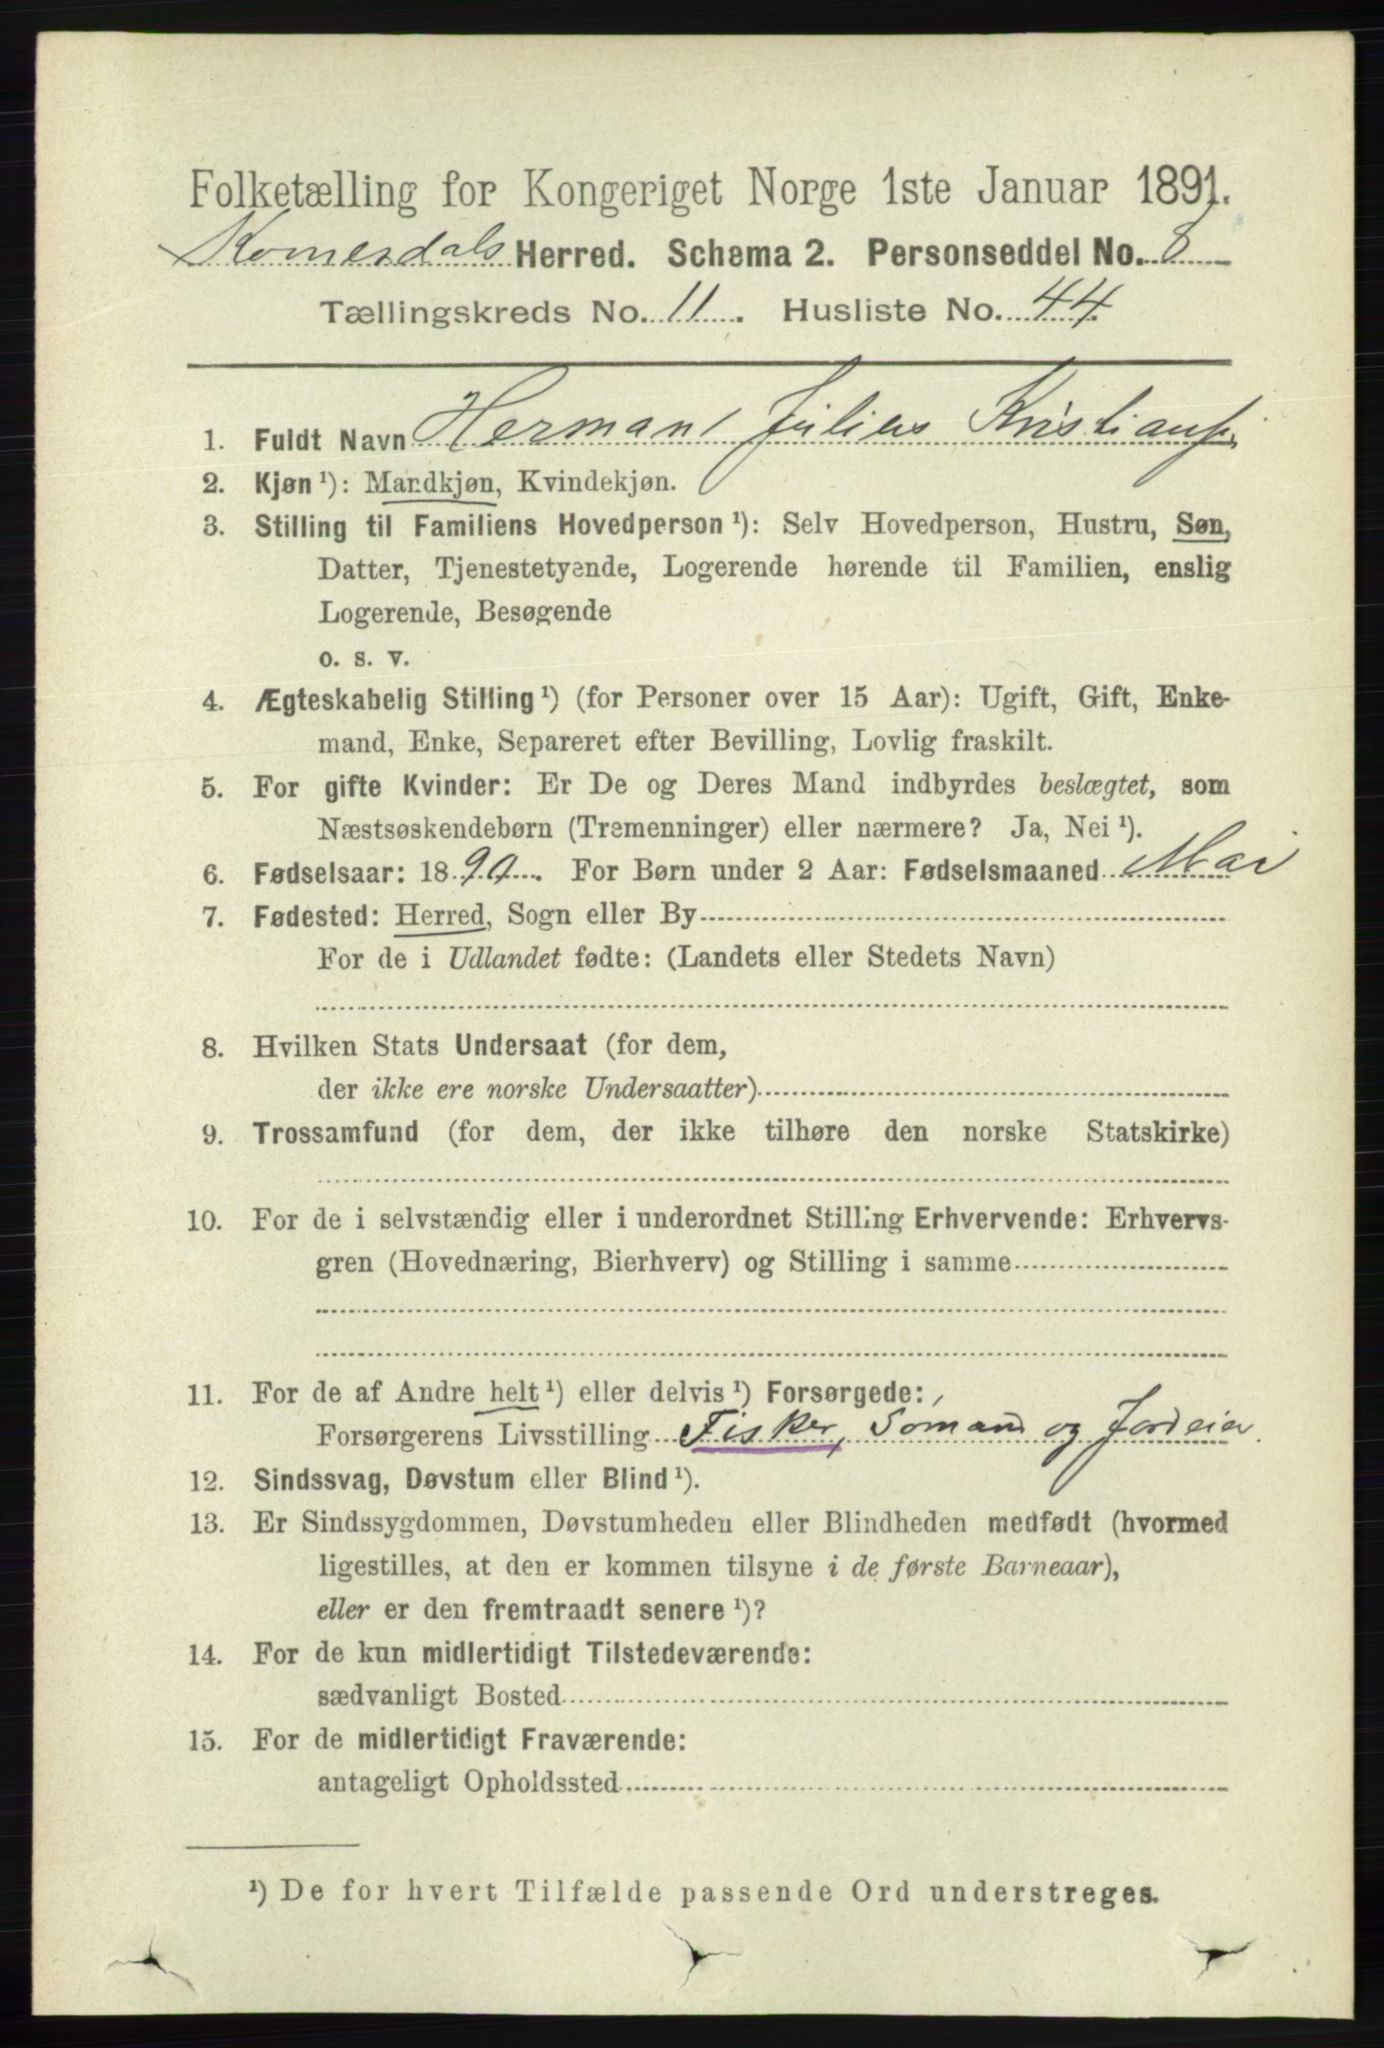 Folketælling for Kongeriget Norge 1ste Januar 1891.
Komesdals Herred. Schema 2. Personseddel No. 8
Tællingskreds No. 11. Husliste No. 44.
1. Fuldt Navn Herman Julius Kristiansen
2. Kjøn ¹): Mandkjøn, Kvindekjøn.
3. Stilling til Familiens Hovedperson ¹): Selv Hovedperson, Hustru, Søn,
Datter, Tjenestetyende, Logerende hørende til Familien, enslig
Logerende, Besøgende
o. s. v.
4. Ægteskabelig Stilling ¹) (for Personer over 15 Aar): Ugift, Gift, Enke-
mand, Enke, Separeret efter Bevilling, Lovlig fraskilt.
5. For gifte Kvinder: Er De og Deres Mand indbyrdes beslægtet, som
Næstsøskendebørn (Tremenninger) eller nærmere? Ja, Nei ¹).
6. Fødselsaar: 1890. For Børn under 2 Aar: Fødselsmaaned Mai
7. Fødested: Herred, Sogn eller By
For de i Udlandet fødte: (Landets eller Stedets Navn)
8. Hvilken Stats Undersaat (for dem,
der ikke ere norske Undersaatter)
9. Trossamfund (for dem, der ikke tilhøre den norske Statskirke)
10. For de i selvstændig eller i underordnet Stilling Erhvervende: Erhvervs-
gren (Hovednæring, Bierhverv) og Stilling i samme
11. For de af Andre helt ¹) eller delvis ¹) Forsørgede:
Forsørgerens Livsstilling Fisker, Sømand og Jordeier.
12. Sindssvag, Døvstum eller Blind ¹).
13. Er Sindssygdommen, Døvstumheden eller Blindheden medfødt (hvormed
ligestilles, at den er kommen tilsyne i de første Barneaar),
eller er den fremtraadt senere ¹)?
14. For de kun midlertidigt Tilstedeværende:
sædvanligt Bosted
15. For de midlertidigt Fraværende:
antageligt Opholdssted
¹) De for hvert Tilfælde passende Ord understreges.